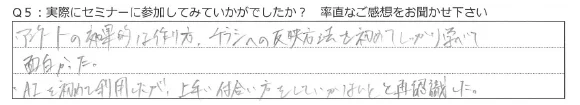 Q5：実際にセミナーに参加してみていかがでしたか？　率直なご感想をお聞かせ下さい
・アンケートの効果的な作り方、チラシへの反映方法を初めてしっかり学べて
面白かった。
・AIを初めて利用したが、上手い付合い方をしていかないと、と再認識した。